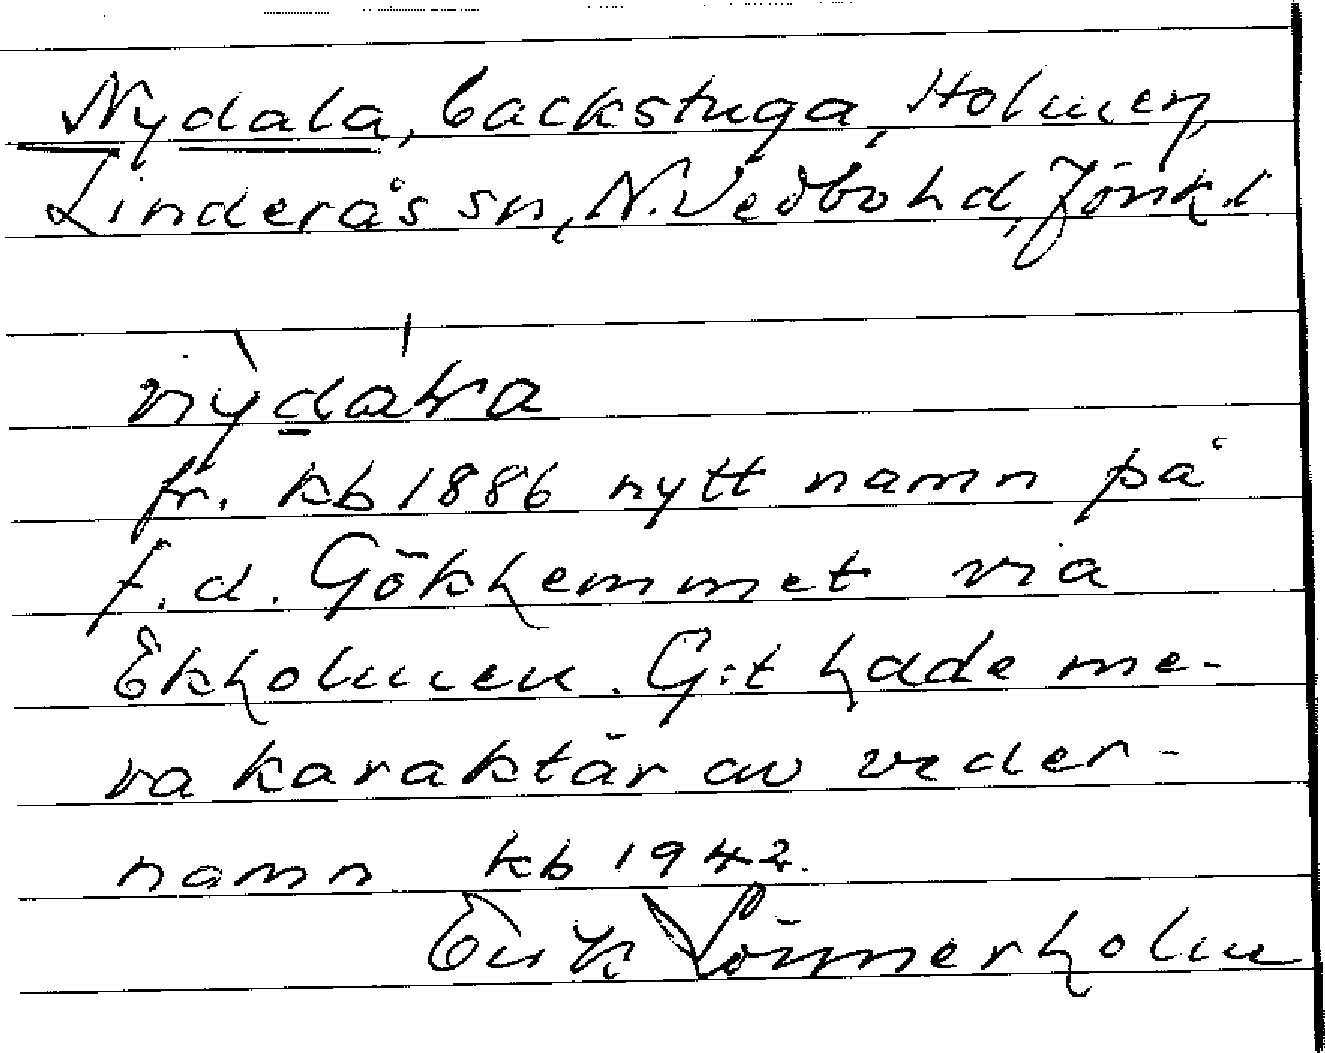 Nydala, backstuga, Holmen,
Linderås sn, N. Vedbo hd, Jönk.l.
fr. kb 1886 nytt namn på
f.d. Gökhemmet via
Ekholmen. G:t hade me-
ra karaktär av veder-
namn kb 1942.
Erik Sönnerholm